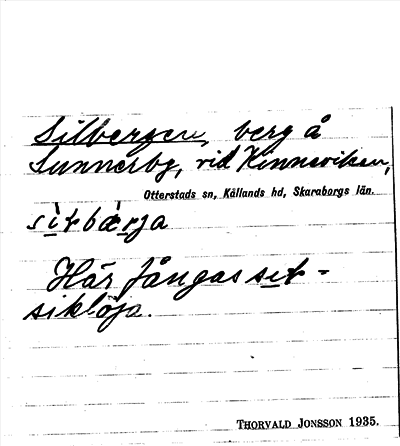 Silbergen, berg å
Sunnerby, vid Kinneviken,
Otterstads sn, Kållands hd, Skaraborgs län.
Här fångas
siklöja.
THORVALD JONSSON 1935.